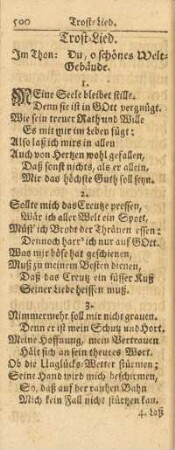 500 Trost-Lied.
Trost-Lied.
Im Thon: Du, o schönes Welt-
Gebäude.
1.
MEine Seele bleibet stille,
Denn sie ist in GOtt vergnügt.
Wie sein treuer Rath und Wille
Es mit mir im Leben fügt:
Also laß ich mirs in allen
Auch von Hertzen wohl gefallen,
Daß sonst nichts, als er allein,
Mir das höchste Guth soll seyn.
2.
Sollte mich das Creutze pressen,
Wär ich aller Welt ein Spott,
Müst' ich Brodt der Thränen essen:
Dennoch harr' ich nur auf GOtt.
Was mir böse hat geschienen,
Muß zu meinem Besten dienen,
Daß das Creutz ein süsser Kuß
Seiner Liebe heissen muß.
3.
Nimmermehr soll mir nicht grauen.
Denn er ist mein Schutz und Hort.
Meine Hoffnung, mein Vertrauen
Hält sich an sein theures Wort.
Ob die Unglücks-Wetter stürmen;
Seine Hand wird mich beschirmen,
So, daß auf der rauhen Bahn
Mich kein Fall nicht stürtzen kan.
4. daß